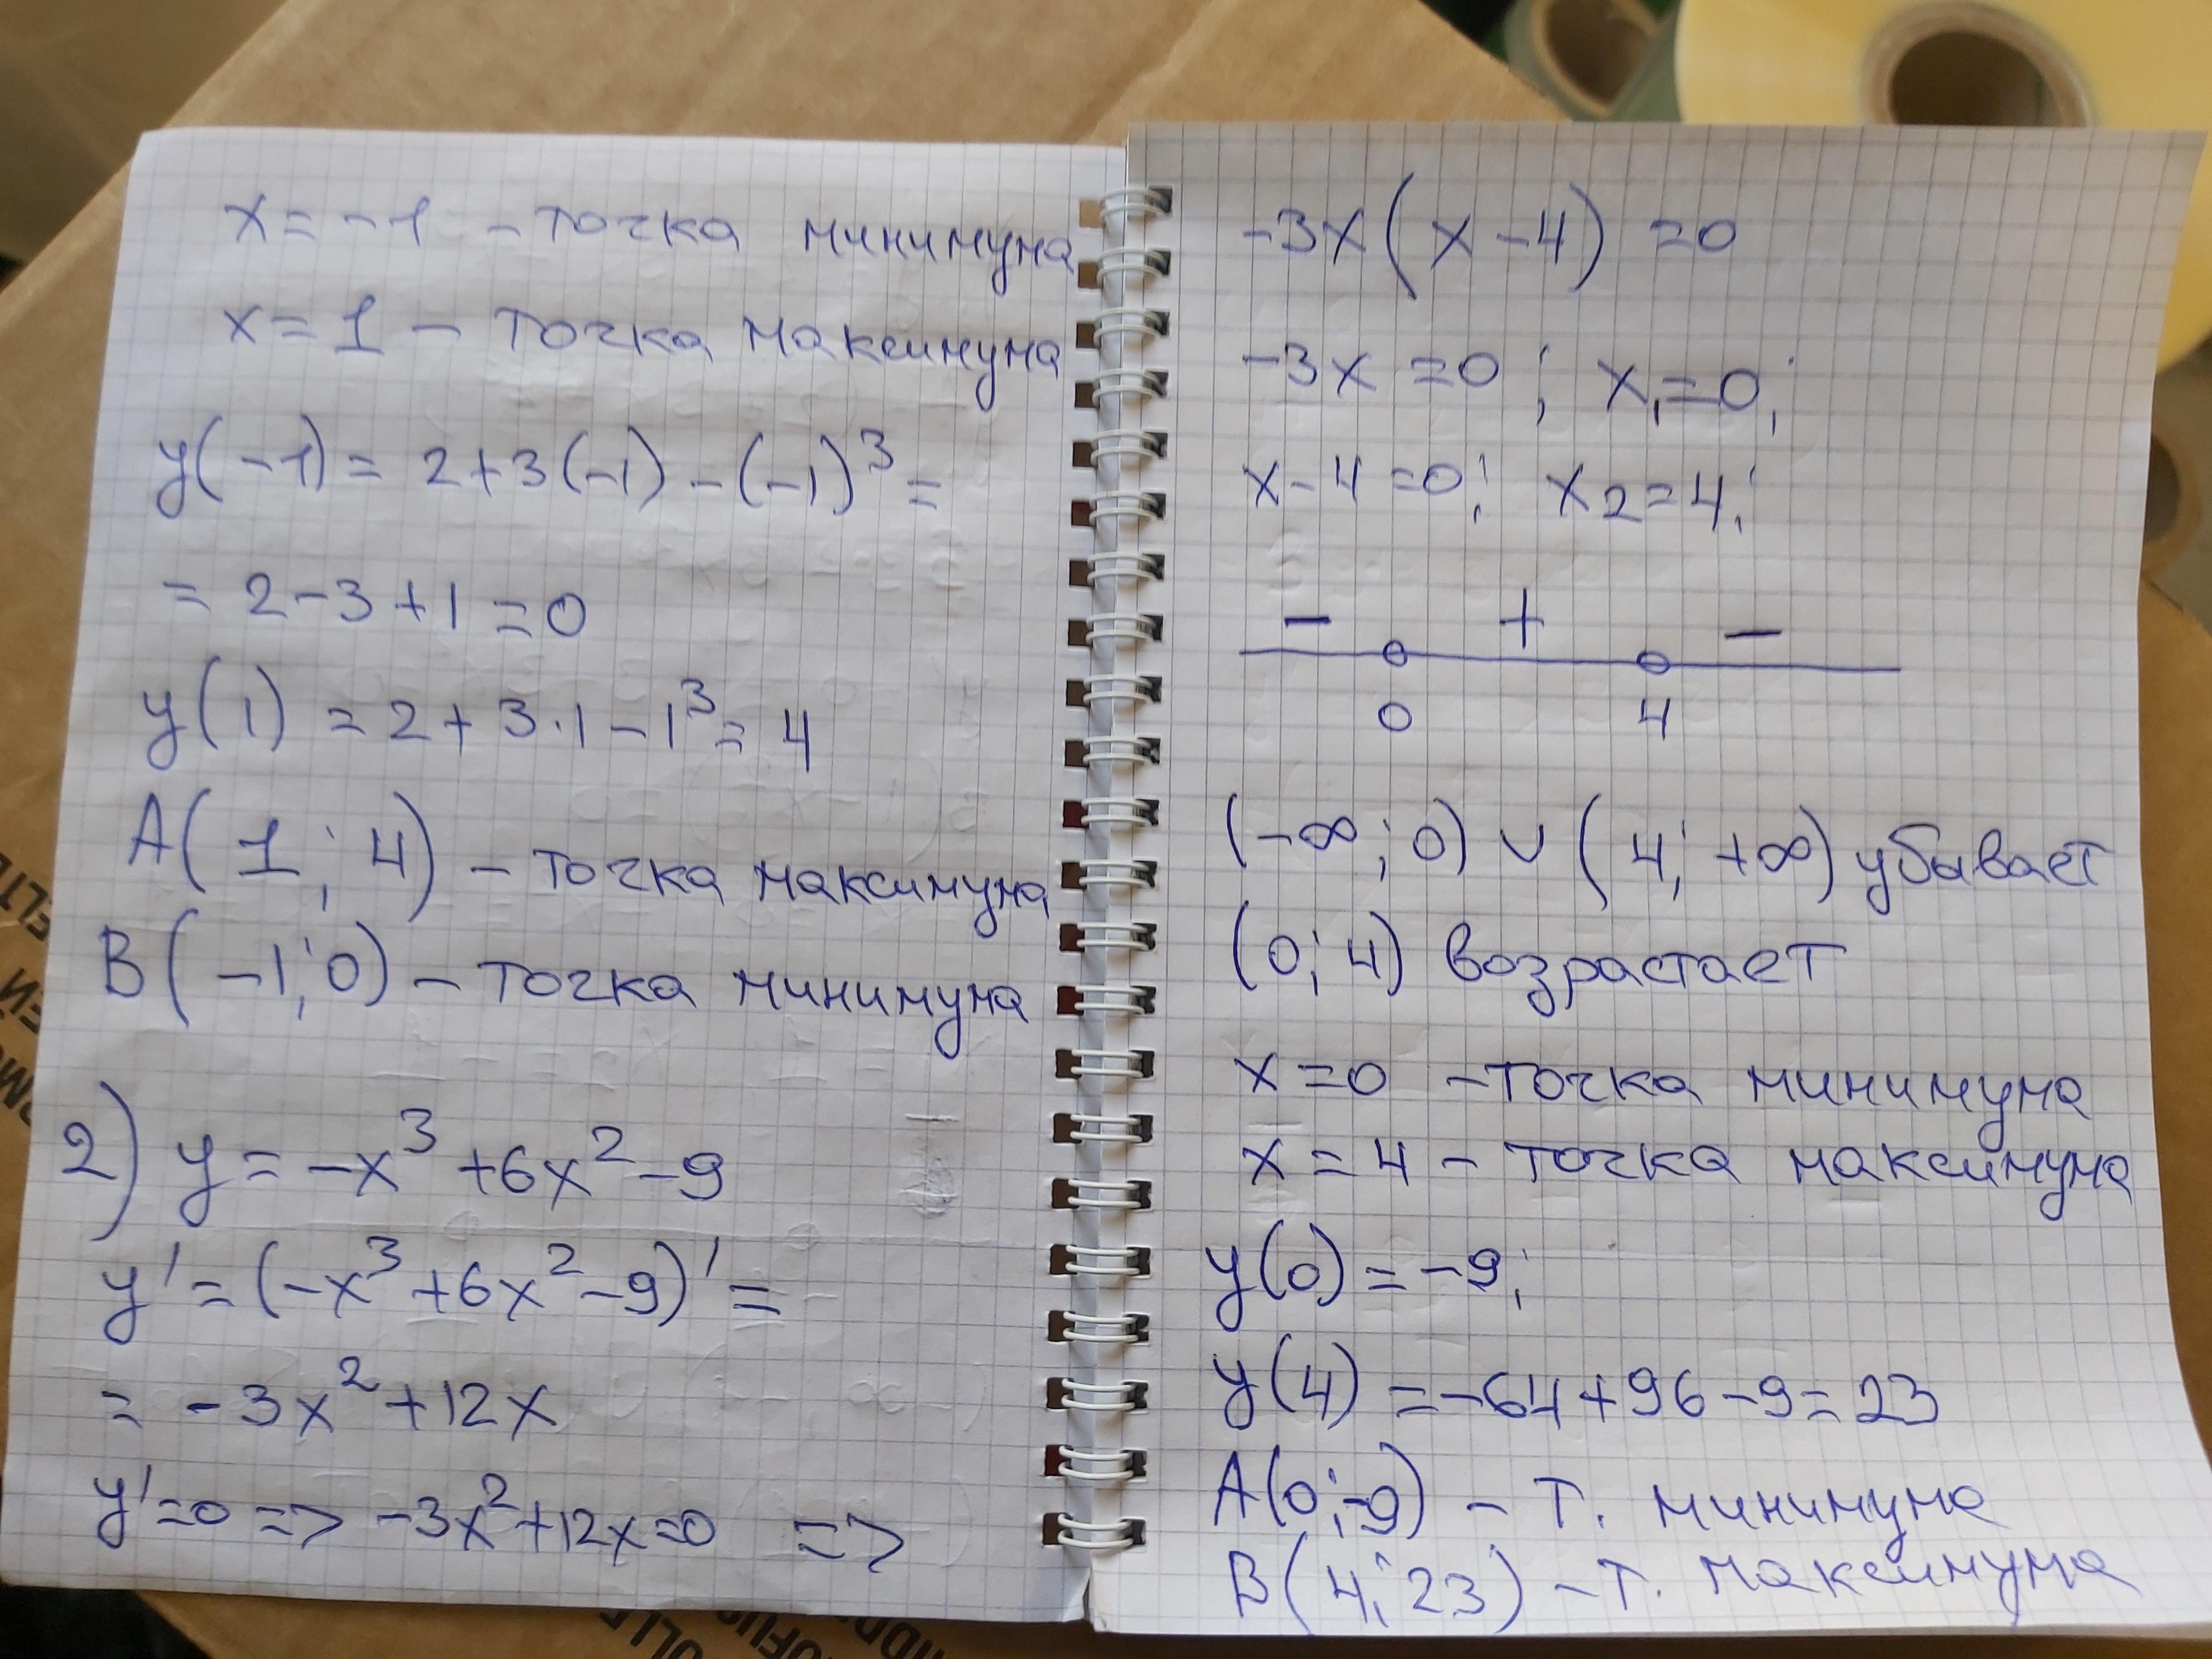 x = -1 - точка минимума
x = 1 - точка максимума
y(-1) = 2+3(-1) - (-1)³ =
= 2-3+1 = 0
y(1) = 2+3·1-1³ = 4
A(1; 4) - точка максимума
B(-1; 0) - точка минимума
2) y = -x³+6x²-9
y' = (-x³+6x²-9)' =
= -3x²+12x
y'=0 => -3x²+12x=0 =>
-3x(x-4) = 0
-3x = 0; x₁=0;
x-4=0; x₂=4;
- + -
0 4
(-∞; 0) ∪ (4; +∞) убывает
(0; 4) возрастает
x=0 - точка минимума
x = 4 - точка максимума
y(0) = -9;
y(4) = -64+96-9=23
A(0;-9) - т. минимума
B(4; 23) - т. максимума